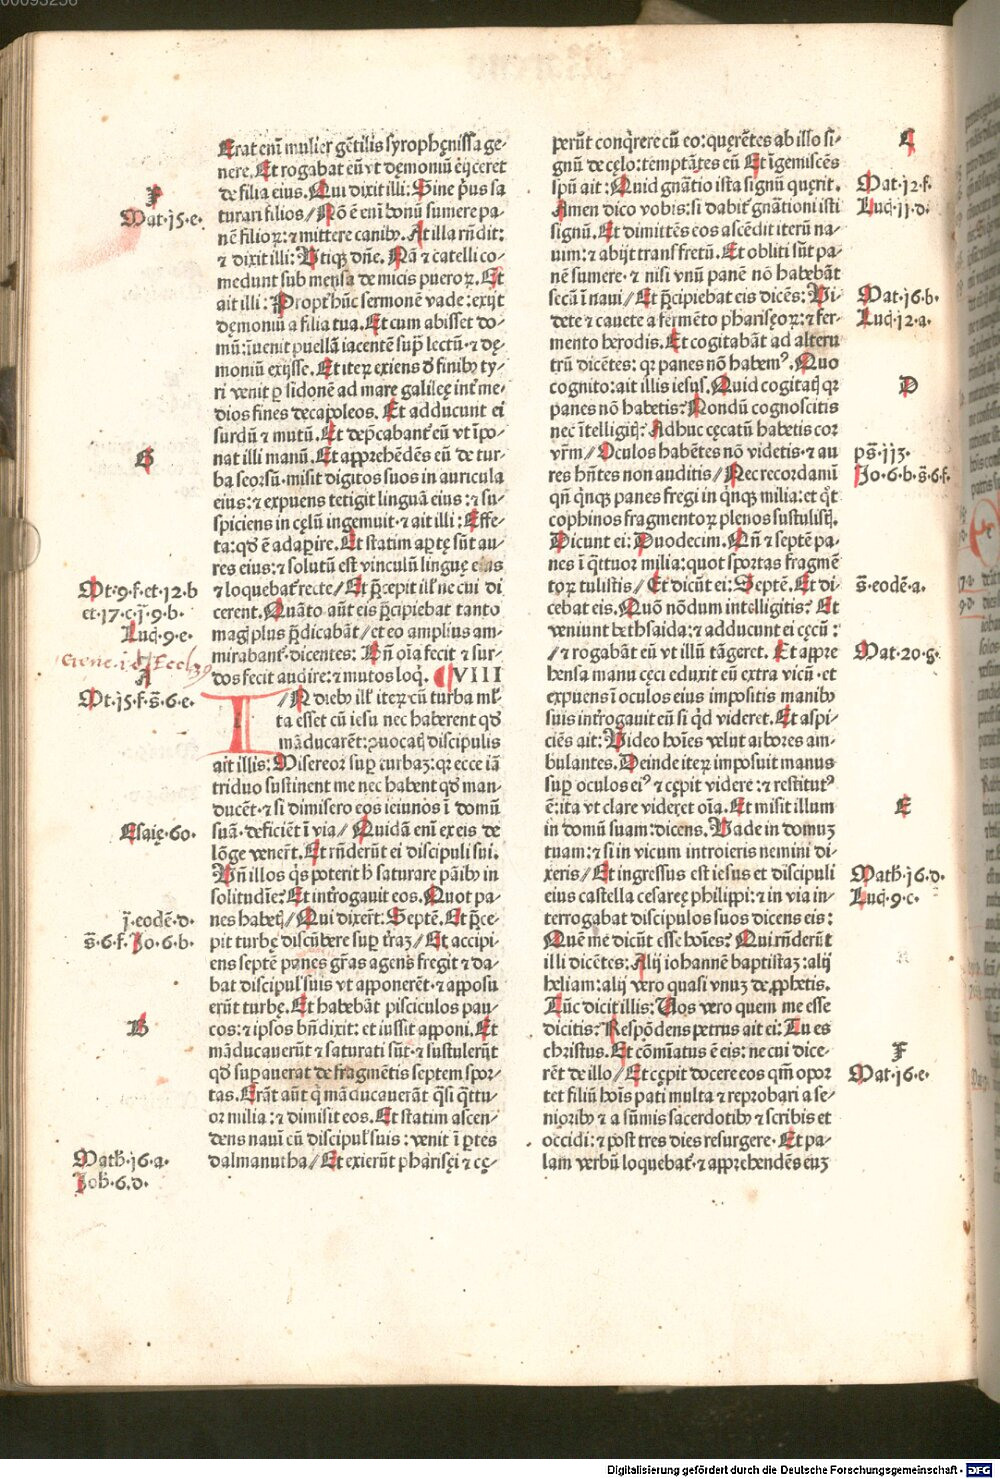 00093256
Erat eni᷑ mulier gētilis syrophęnissa ge⸗
nere. Et rogabat eū vt dęmoniū eijceret
de filia eius. Qui dixit illi: Sine p̄us sa
turari filios/ Nō ē eni᷑ bonū sumere pa⸗
nē filioꝝ: ⁊ mittere canibꝰ. At illa rn̄dit:
⁊ dixit illi: Utiqꝫ dn̄e. Nā ⁊ catelli co⸗
medunt sub mensa de micis pueroꝝ. Et
ait illi: Propt̄ hūc sermonē vade: exijt
dęmoniū a filia tua. Et cum abisset do⸗
mū: īuenit puellā iacentē sup̄ lectū ⁊ dę⸗
moniū exijsse. Et iteꝝ exiens d̄ finibꝰ ty⸗
ri venit ꝑ sidonē ad mare galileę int̄ me⸗
dios fines decapoleos. Et adducunt ei
surdū ⁊ mutū. Et dep̄cabant̄ eū vt īpo⸗
nat illi manū. Et apprehēdēs eū de tur⸗
ba seorsū misit digitos suos in auricula
eius: ⁊ expuens tetigit linguā eius: ⁊ su⸗
spiciens in cęlū ingemuit ⁊ ait illi: Effe⸗
ta: qd̄ ē adaꝑire. Et statim aꝑtę sūt au⸗
res eius: ⁊ solutū est vinculū linguę eius
⁊ loquebat᷑ recte/ Et p̄cepit ill᷑ ne cui di
cerent. Quāto aūt eis p̄cipiebat tanto
magꝭ plus p̄dicabāt/ et eo amplius am⸗
mirabant᷑ dicentes: Bn̄ oīa fecit ⁊ sur⸗
dos fecit audire: ⁊ mutos loq̇. ¶ VIII
IN diebꝰ ill᷑ iteꝝ cū turba ml᷑
ta esset cū iesu nec haberent qd̄
māducarēt: ꝯuocatꝭ discipulis
ait illis: Misereor sup̄ turbaꝫ: qꝛ ecce iā
triduo sustinent me nec habent qd̄ man⸗
ducēt ⁊ si dimisero eos ieiunos ī domū
suā deficiēt ī via/ Quidā eni᷑ ex eis de
lōge venerūt. Et rn̄derūt ei discipuli sui.
Vn̄ illos q̇s poterit h̄ saturare pāibꝰ in
solitudīe: Et int̄rogauit eos. Quot pa⸗
nes habetꝭ/ Qui dixerūt: Septē. Et p̄ce⸗
pit turbę discūbere sup̄ t̄raꝫ/ Et accipi⸗
ens septē panes gr̄as agens fregit ⁊ da⸗
bat discipul᷑ suis vt apponerēt ⁊ apposu
erūt turbę. Et habebāt pisciculos pau⸗
cos: ⁊ ipsos bn̄dixit: et iussit apponi. Et
māducauerūt ⁊ saturati sūt ⁊ sustulerūt
qd̄ suꝑauerat de fragmētis septem spor⸗
tas. Erāt aūt q̇ māducauerāt q̄si q̄ttu⸗
or milia: ⁊ dimisit eos. Et statim ascen⸗
dens nauī cū discipul᷑ suis: venit ī ꝑtes
dalmanutha/ Et exierūt pharisęi ⁊ cę⸗
perūt conq̇rere cū eo: quęrētes ab illo si⸗
gnū de cęlo: temptātes eū Et īgemiscēs
spū ait: Quid gn̄atio ista signū quęrit.
Amen dico vobis: si dabit᷑ gn̄ationi isti
signū. Et dimittēs eos ascēdit iterū na⸗
uim: ⁊ abijt trans fretū. Et obliti sūt pa⸗
nē sumere ⁊ nisi vnū panē nō habebāt
secū ī naui/ Et p̄cipiebat eis dicēs: Vi⸗
dete ⁊ cauete a fermēto pharisęoꝝ: ⁊ fer⸗
mento herodis. Et cogitabāt ad alteru
trū dicētes: qꝛ panes nō habemꝰ. Quo
cognito: ait illis iesus. Quid cogitatꝭ qꝛ
panes nō habetis? Nondū cognoscitis
nec ītelligitꝭ? Adhuc cęcatū habetis cor
vr̄m/ Oculos habētes nō videtis ⁊ au
res hn̄tes non auditis/ Nec recordamī
qn̄ q̇nqꝫ panes fregi in q̇nqꝫ milia: et q̊t
cophinos fragmentoꝝ plenos sustulistꝭ.
Dicunt ei: Duodecim. Qn̄ ⁊ septē pa⸗
nes ī q̄ttuor milia: quot sportas fragmē
toꝝ tulistis/ Et dicūt ei: Septē. Et di⸗
cebat eis. Quō nōdum intelligitis? Et
veniunt bethsaida: ⁊ adducunt ei cęcū:
/ ⁊ rogabāt eū vt illū tāgeret. Et appre
hensa manu cęci eduxit eū extra vicū ⁊
expuens ī oculos eius impositis manibꝰ
suis int̄rogauit eū si q̇d videret. Et aspi⸗
ciēs ait: Video hoīes velut arbores am⸗
bulantes. Deinde iteꝝ imposuit manus
sup̄ oculos eiꝰ ⁊ cępit videre: ⁊ restitutꝰ
ē: ita vt clare videret oīa. Et misit illum
in domū suam: dicens. Vade in domuꝫ
tuam: ⁊ si in vicum introieris nemini di⸗
xeris/ Et ingressus est iesus et discipuli
eius castella cesareę philippi: ⁊ in via in⸗
terrogabat discipulos suos dicens eis:
Quē me dicūt esse hoīes? Qui rn̄derūt
illi dicētes: Alij iohannē baptistaꝫ: alij
heliam: alij vero quasi vnuꝫ de ꝓphetis.
Tūc dicit illis: Uos vero quem me esse
dicitis? Respōdens petrus ait ei: Tu es
christus. Et cōmīatus ē eis: ne cui dice⸗
rēt de illo/ Et cępit docere eos qm̄ opor
tet filiū hoīs pati multa ⁊ reprobari a se⸗
nioribꝰ ⁊ a sūmis sacerdotibꝰ ⁊ scribis et
occidi: ⁊ post tres dies resurgere. Et pa⸗
lam verbū loquebat᷑ ⁊ apprehendēs euꝫ
F
Mat·15·e·
G
Mt·9·f·et·12·b
et·17·c·ī·9·b·
Luc̄·9·e·
H
A
Mt·15·f·s̄·6·e·
Esaię·60·
ī·eodē·d·
s̄·6·f·Jo·6·b·
B
Math̄·16·a·
Joh̄·6·d·
C
Mat·12·f·
Luc̄·11·d·
Mat·16·b·
Luc̄·12·a·
D
ps̄·113·
Jo·6·b·s̄·6·f·
s̄·eodē·a·
Mat·20·g·
E
Math̄·16·d·
Luc̄·9·c·
F
Mat·16·e·
Digitalisierung gefördert durch die Deutsche Forschungsgemeinschaft - DFG